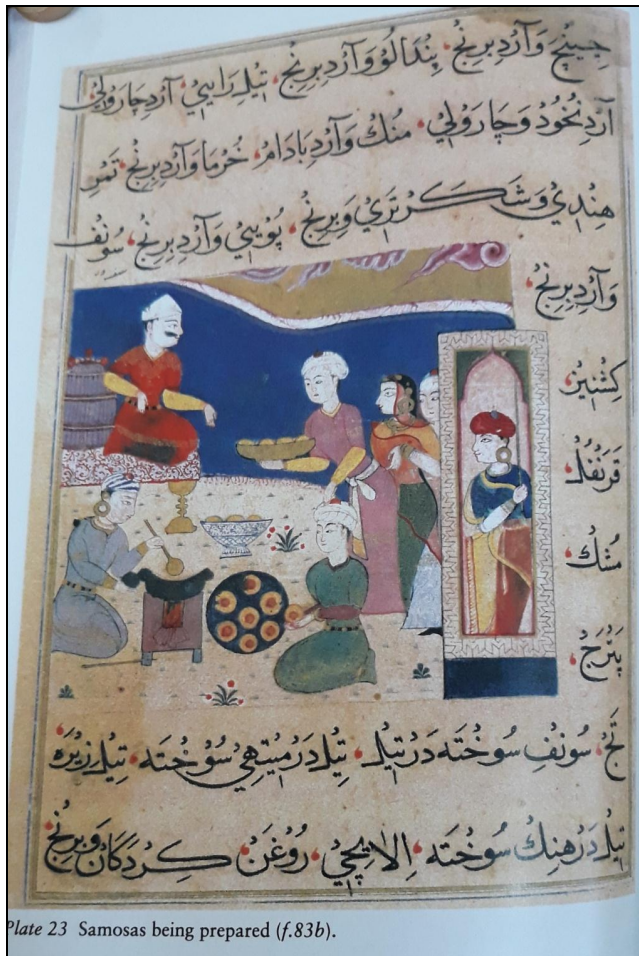 وَآرْدِ بِرِنْجْ، پِنْدَالُو وَآرْدِ بِرِنْجْ، تِيلِ رَايِي، آرْدِ چَارَوْلِي
آرْدِ نُخُودْ وَچَارَوْلِي، مُنْك وَآرْدِ بَادَامْ، خُرْمَا وَآرْدِ بِرِنْجْ، تَمْرِ
هِنْدِي وَشَكَرْ تَرِي وَبِرِنْجْ، پُويِي وَآرْدِ بِرِنْجْ، سُونْف
وَآرْدِ بِرِنْجْ،
كِشْنِيزْ،
قَرَنْفُلْ،
پَتْرَجْ،
تَجْ، سُونْفِ سُوخْتَه دَرْ تِيلْ، تِيلْ دَرْ مِيتْهِي سُوخْتَه، تِيلِ زِيرَه
تِيلْ دَرْ هِنْك سُوخْتَه، اِلَايْچِي، رُوغَنْ كِرْدَكَانْ وَبِرِنْجْ
Plate 23 Samosas being prepared (f.83b).